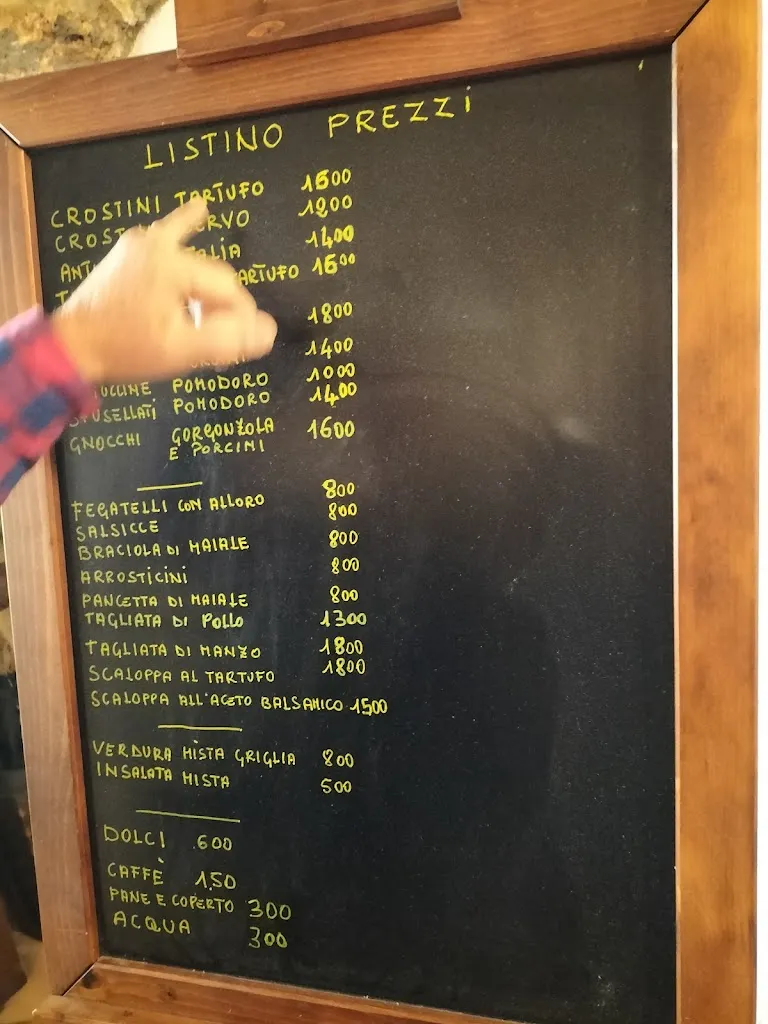 LISTINO PREZZI
CROSTINI TARTUFO 1600
CROST ERVO 1200
ANT ALIA 1400
ARTUFO 1600
1800
1400
POMODORO 1000
STUSELLATI POMODORO 1400
GNOCCHI GORGONZOLA 1600
E PORCINI
FEGATELLI CON ALLORO 800
SALSICCE 800
BRACIOLA DI MAIALE 800
ARROSTICINI 800
PANCETTA DI MAIALE 800
TAGLIATA DI POLLO 1300
TAGLIATA DI MANZO 1800
SCALOPPA AL TARTUFO 1800
SCALOPPA ALL'ACETO BALSAMICO 1500
VERDURA MISTA GRIGLIA 800
INSALATA MISTA 500
DOLCI 600
CAFFÈ 1,50
PANE E COPERTO 300
ACQUA 300